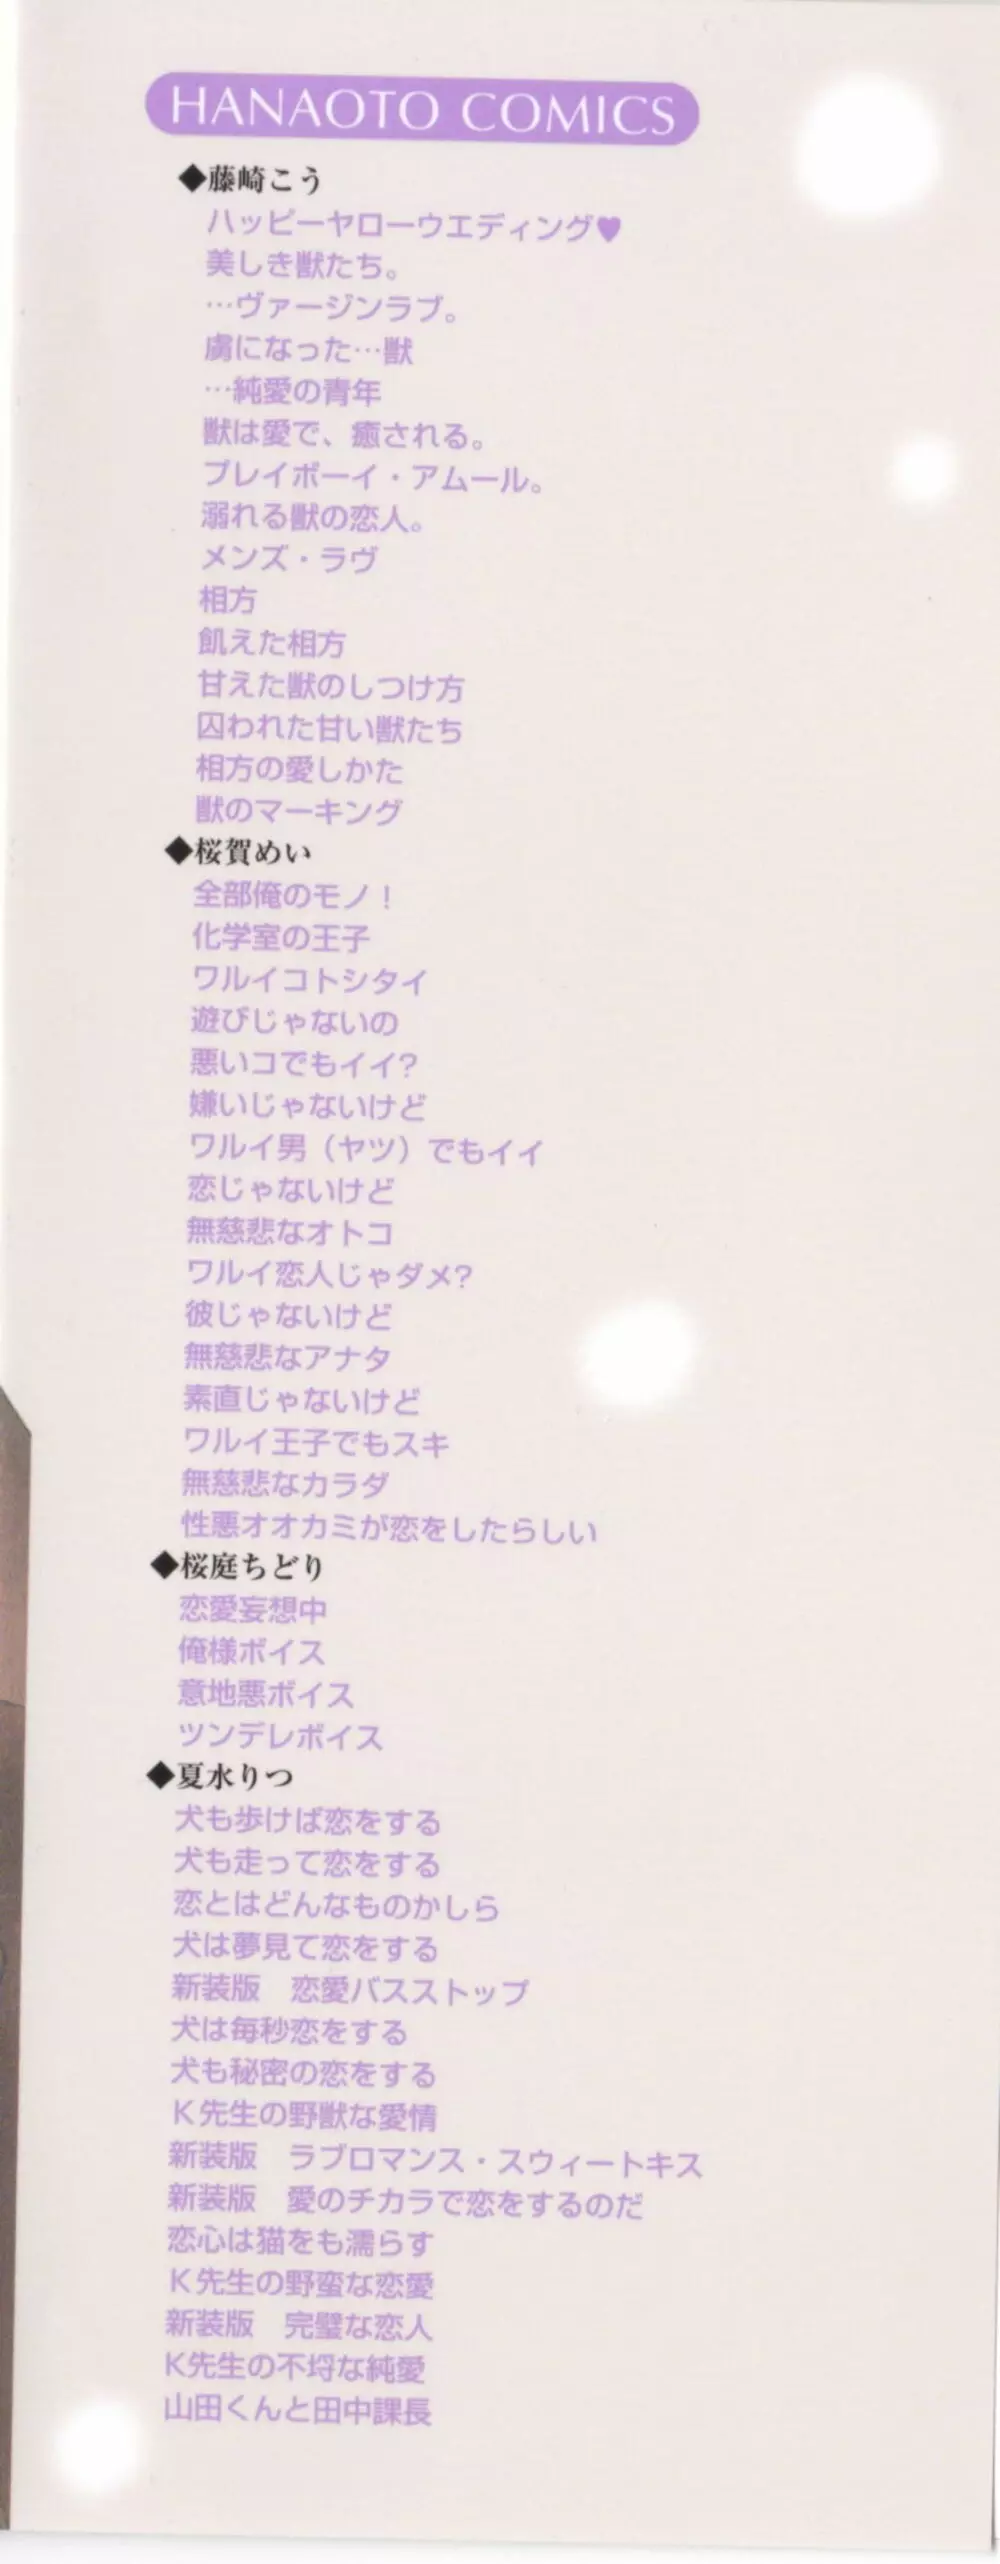 HANAOTO COMICS
◆藤崎こう
ハッピーヤローウエディング♥
美しき獣たち。
…ヴァージンラブ。
虜になった…獣
…純愛の青年
獣は愛で、癒される。
プレイボーイ・アムール。
溺れる獣の恋人。
メンズ・ラヴ
相方
飢えた相方
甘えた獣のしつけ方
囚われた甘い獣たち
相方の愛しかた
獣のマーキング
◆桜賀めい
全部俺のモノ！
化学室の王子
ワルイコトシタイ
遊びじゃないの
悪いコでもイイ?
嫌いじゃないけど
ワルイ男（ヤツ）でもイイ
恋じゃないけど
無慈悲なオトコ
ワルイ恋人じゃダメ?
彼じゃないけど
無慈悲なアナタ
素直じゃないけど
ワルイ王子でもスキ
無慈悲なカラダ
性悪オオカミが恋をしたらしい
◆桜庭ちどり
恋愛妄想中
俺様ボイス
意地悪ボイス
ツンデレボイス
◆夏水りつ
犬も歩けば恋をする
犬も走って恋をする
恋とはどんなものかしら
犬は夢見て恋をする
新装版　恋愛バスストップ
犬は毎秒恋をする
犬も秘密の恋をする
K先生の野獣な愛情
新装版　ラブロマンス・スウィートキス
新装版　愛のチカラで恋をするのだ
恋心は猫をも濡らす
K先生の野蛮な恋愛
新装版　完璧な恋人
K先生の不埒な純愛
山田くんと田中課長